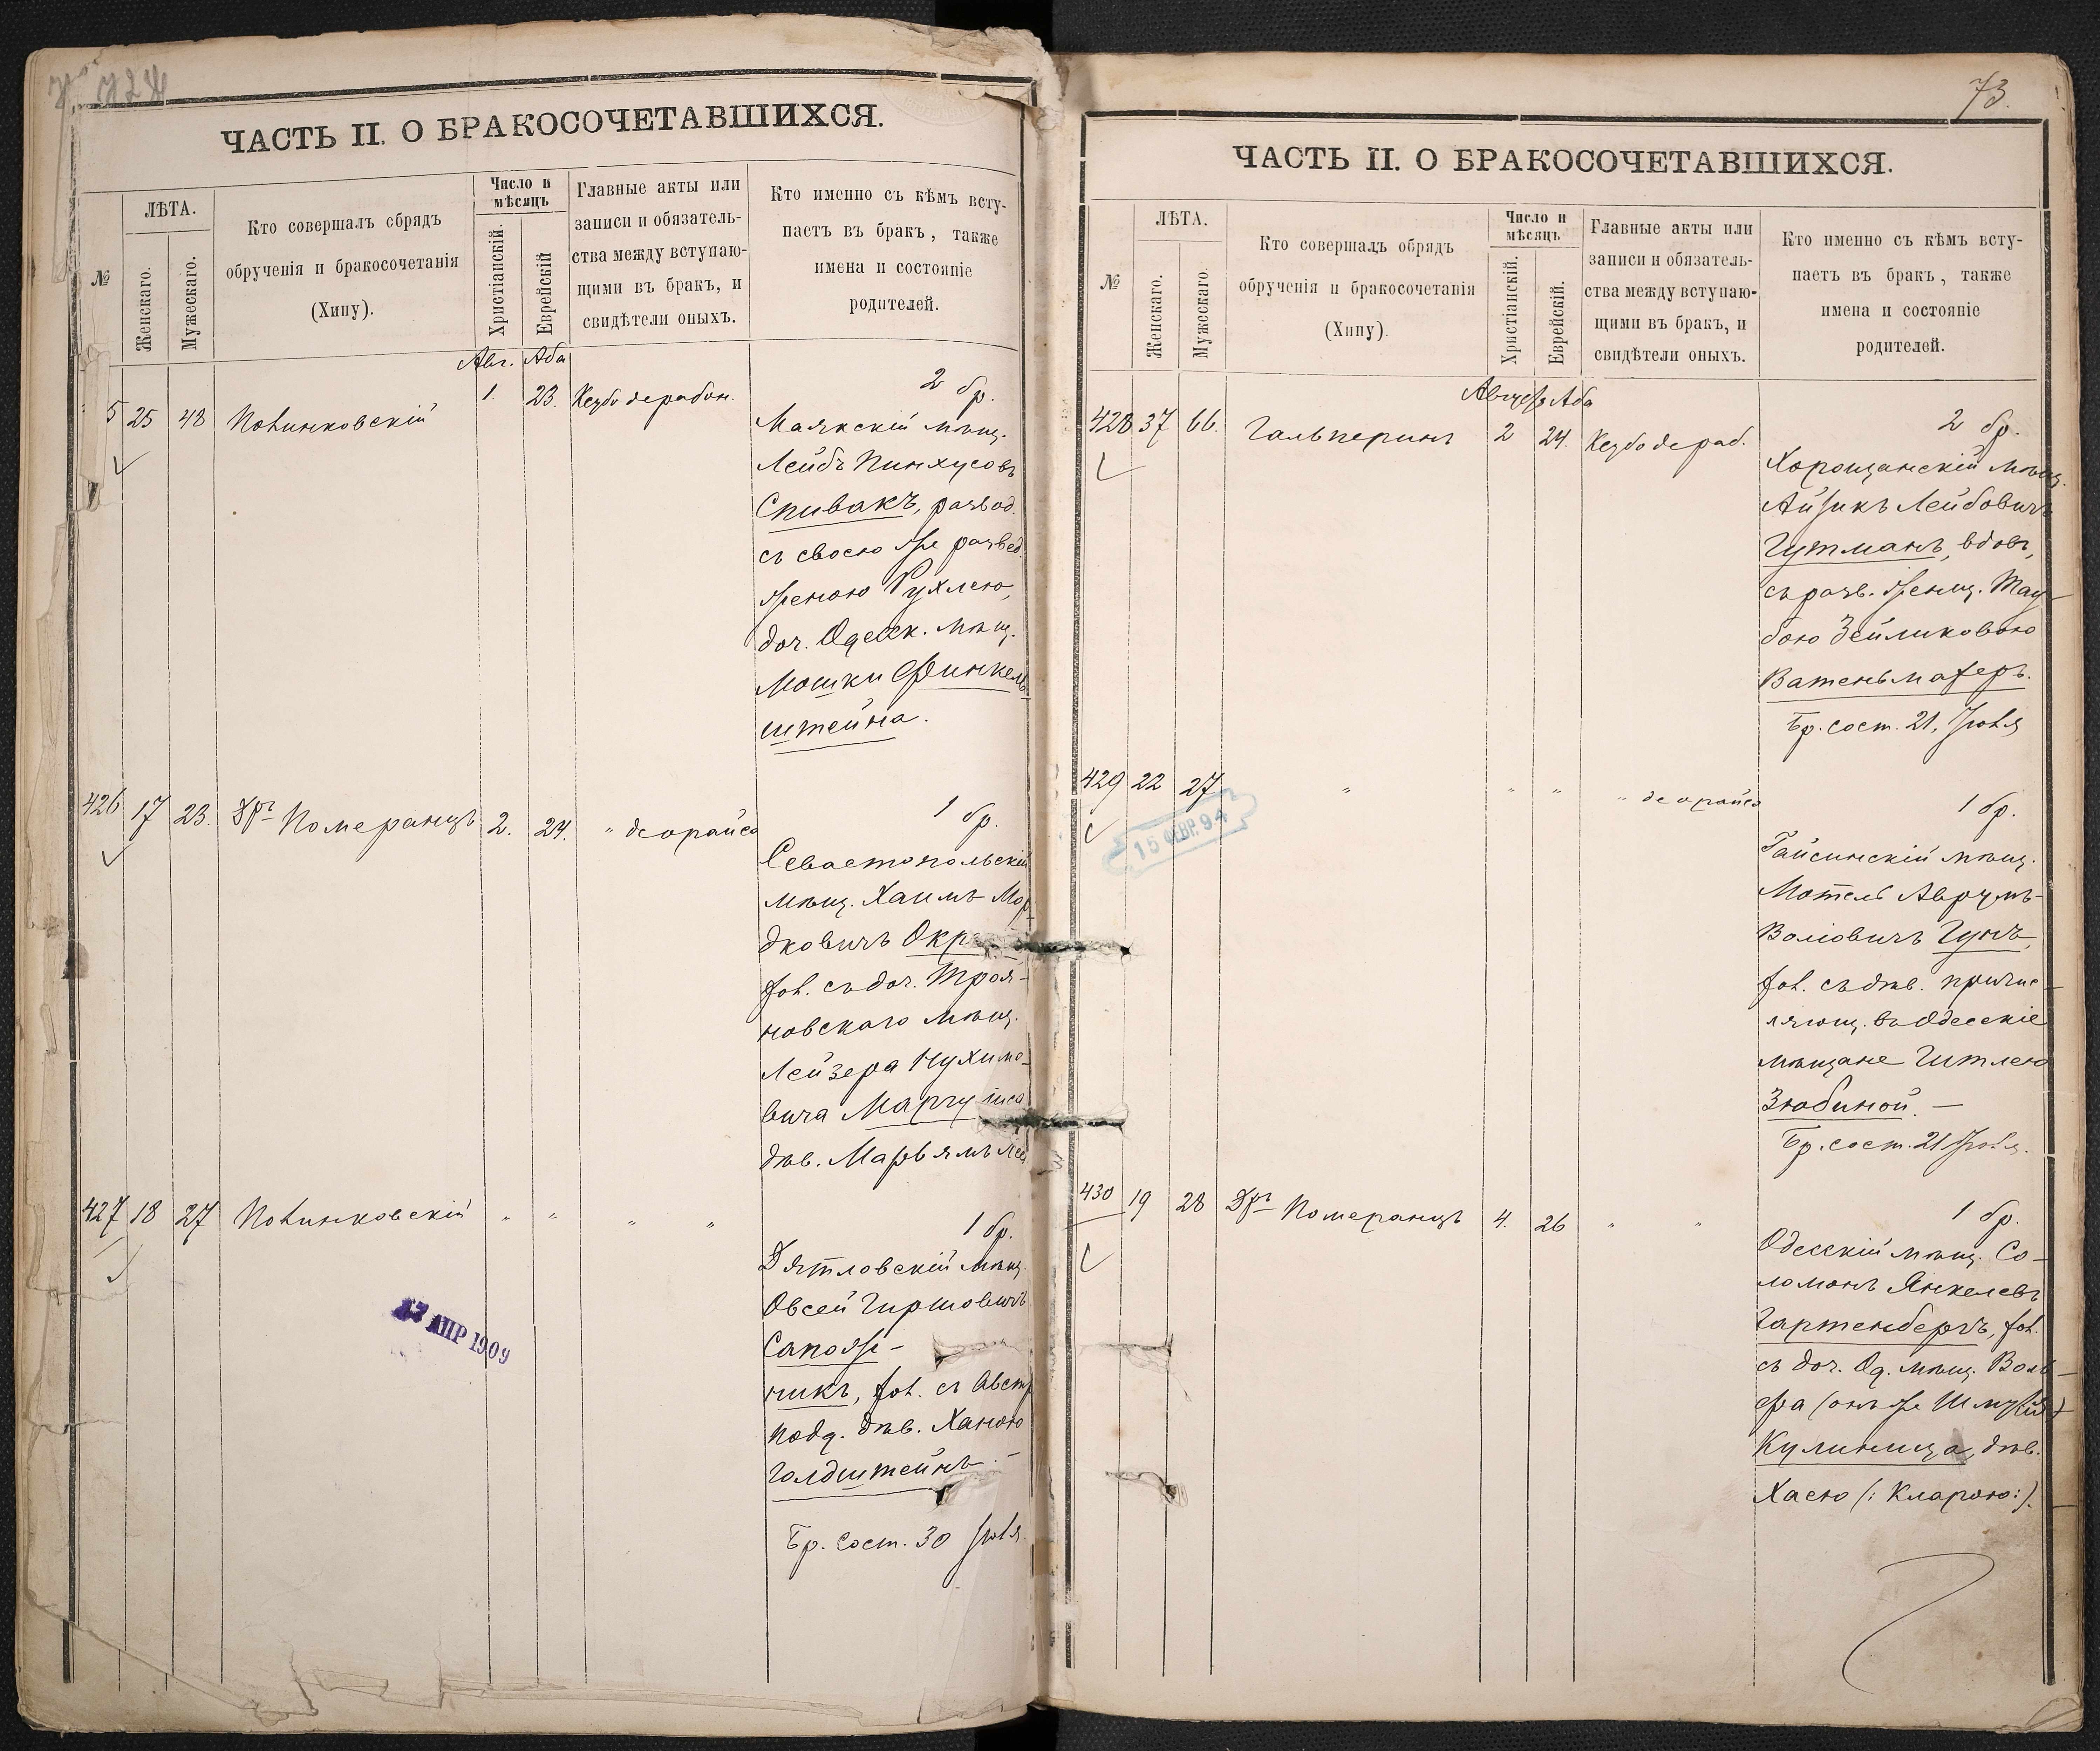 ЧАСТЬ II. О БРАКОСОЧЕТАВШИХСЯ.
№
ЛѢТА.
Женскаго.
Мужескаго.
Кто совершалъ обрядъ
обрученія и бракосочетанія
(Хипу).
Число и
мѣсяцъ
Христіанскій.
Еврейскій
Главные акты или
записи и обязатель-
ства между вступаю-
щими въ бракъ, и
свидѣтели оныхъ.
Кто именно съ кѣмъ всту-
паетъ въ бракъ, также
имена и состояніе
родителей.
Авг. Аба
5 25 48 1. 23.
2 бр.
Маякскій мѣщ.
Лейбъ Пинхусовъ
Спивакъ, развод.
съ своею же развед.
женою Рухлею,
доч. Одесск. мѣщ.
Мошки Финкель-
штейна.
426 17 23. Дръ Померанцъ 2. 24. " деорайса
1 бр.
Севастопольскій
мѣщ. Хаимъ Мор-
дковичъ
хол. съ доч. Троя-
новскаго мѣщ.
Лейзера Нухимо-
вича
дѣв. Марьямъ Леа
427 18 27 " " " "
1 бр.
Дятловскій мѣщ.
Овсей Гиршовичъ
Сапож-
никъ, хол. съ Австр.
подд. дѣв. Ханою
Голдштейнъ. —
Бр. сост. 30 Іюля.
АПР 1909
73.
ЧАСТЬ II. О БРАКОСОЧЕТАВШИХСЯ.
№
ЛѢТА.
Женскаго.
Мужескаго.
Кто совершалъ обрядъ
обрученія и бракосочетанія
(Хипу).
Число и
мѣсяцъ
Христіанскій.
Еврейскій.
Главные акты или
записи и обязатель-
ства между вступаю-
щими въ бракъ, и
свидѣтели оныхъ.
Кто именно съ кѣмъ всту-
паетъ въ бракъ, также
имена и состояніе
родителей.
Августъ Аба
428 37 66. Гальперинъ 2 24.
2 бр.
Хорощанскій мѣщ.
Айзикъ Лейбовичъ
Гутманъ, вдов,
съ разв. женщ. Тау-
бою Зейликовою
Ватенмахеръ.
Бр. сост. 21, Іюля
429 22 27 " " " " деорайса
15 ФЕВР. 94
1 бр.
Гайсинскій мѣщ.
Мотель Аврумъ-
Воліовичъ Гунъ,
хол. съ дѣв. причис-
ляющ. въ Одесскіе
мѣщане Гитлею
Зюбиной. —
Бр. сост. 21 Іюля.
430 19 28 Дръ Померанцъ 4. 26 " "
1 бр.
Одесскій мѣщ. Со-
ломонъ Янкелевъ
Гартенбергъ, хол.
съ доч. Од. мѣщ. Воль-
фа (онъ же Шмуль)
Кулиница, дѣв.
Хасею (: Кларою:).